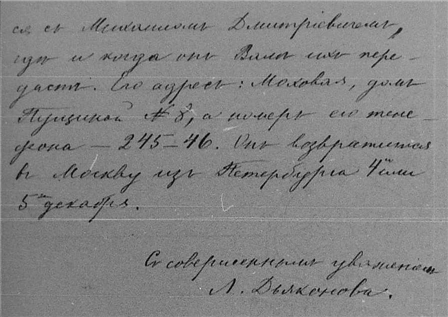 ся съ Михаиломъ Дмитріевичемъ,
гдѣ и когда онъ Вамъ ихъ пере-
дастъ. Его адресъ: Моховая, домъ
Пущиной № 8, а номеръ его теле-
фона – 245–46. Онъ возвратится
въ Москву изъ Петербурга 4го или
5го декабря.
Съ совершеннымъ уваженіемъ
Л. Дьяконова.